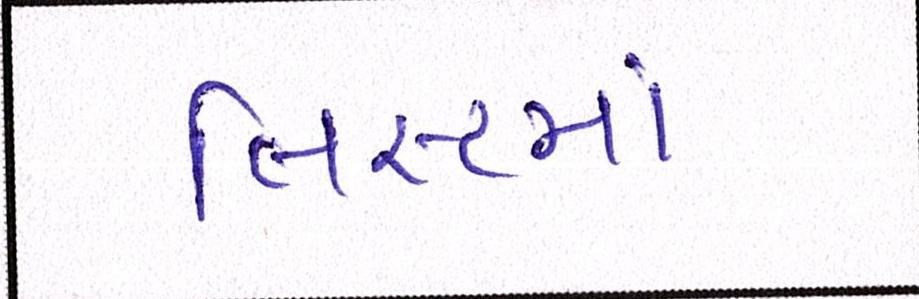 લિસ્ટમાં